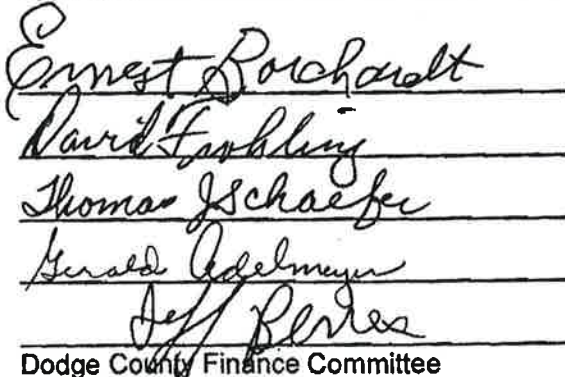 Ernest Borchardt
David Frohling
Thomas J Schaefer
Gerald Adelmeyer
Jeff Berres
Dodge County Finance Committee